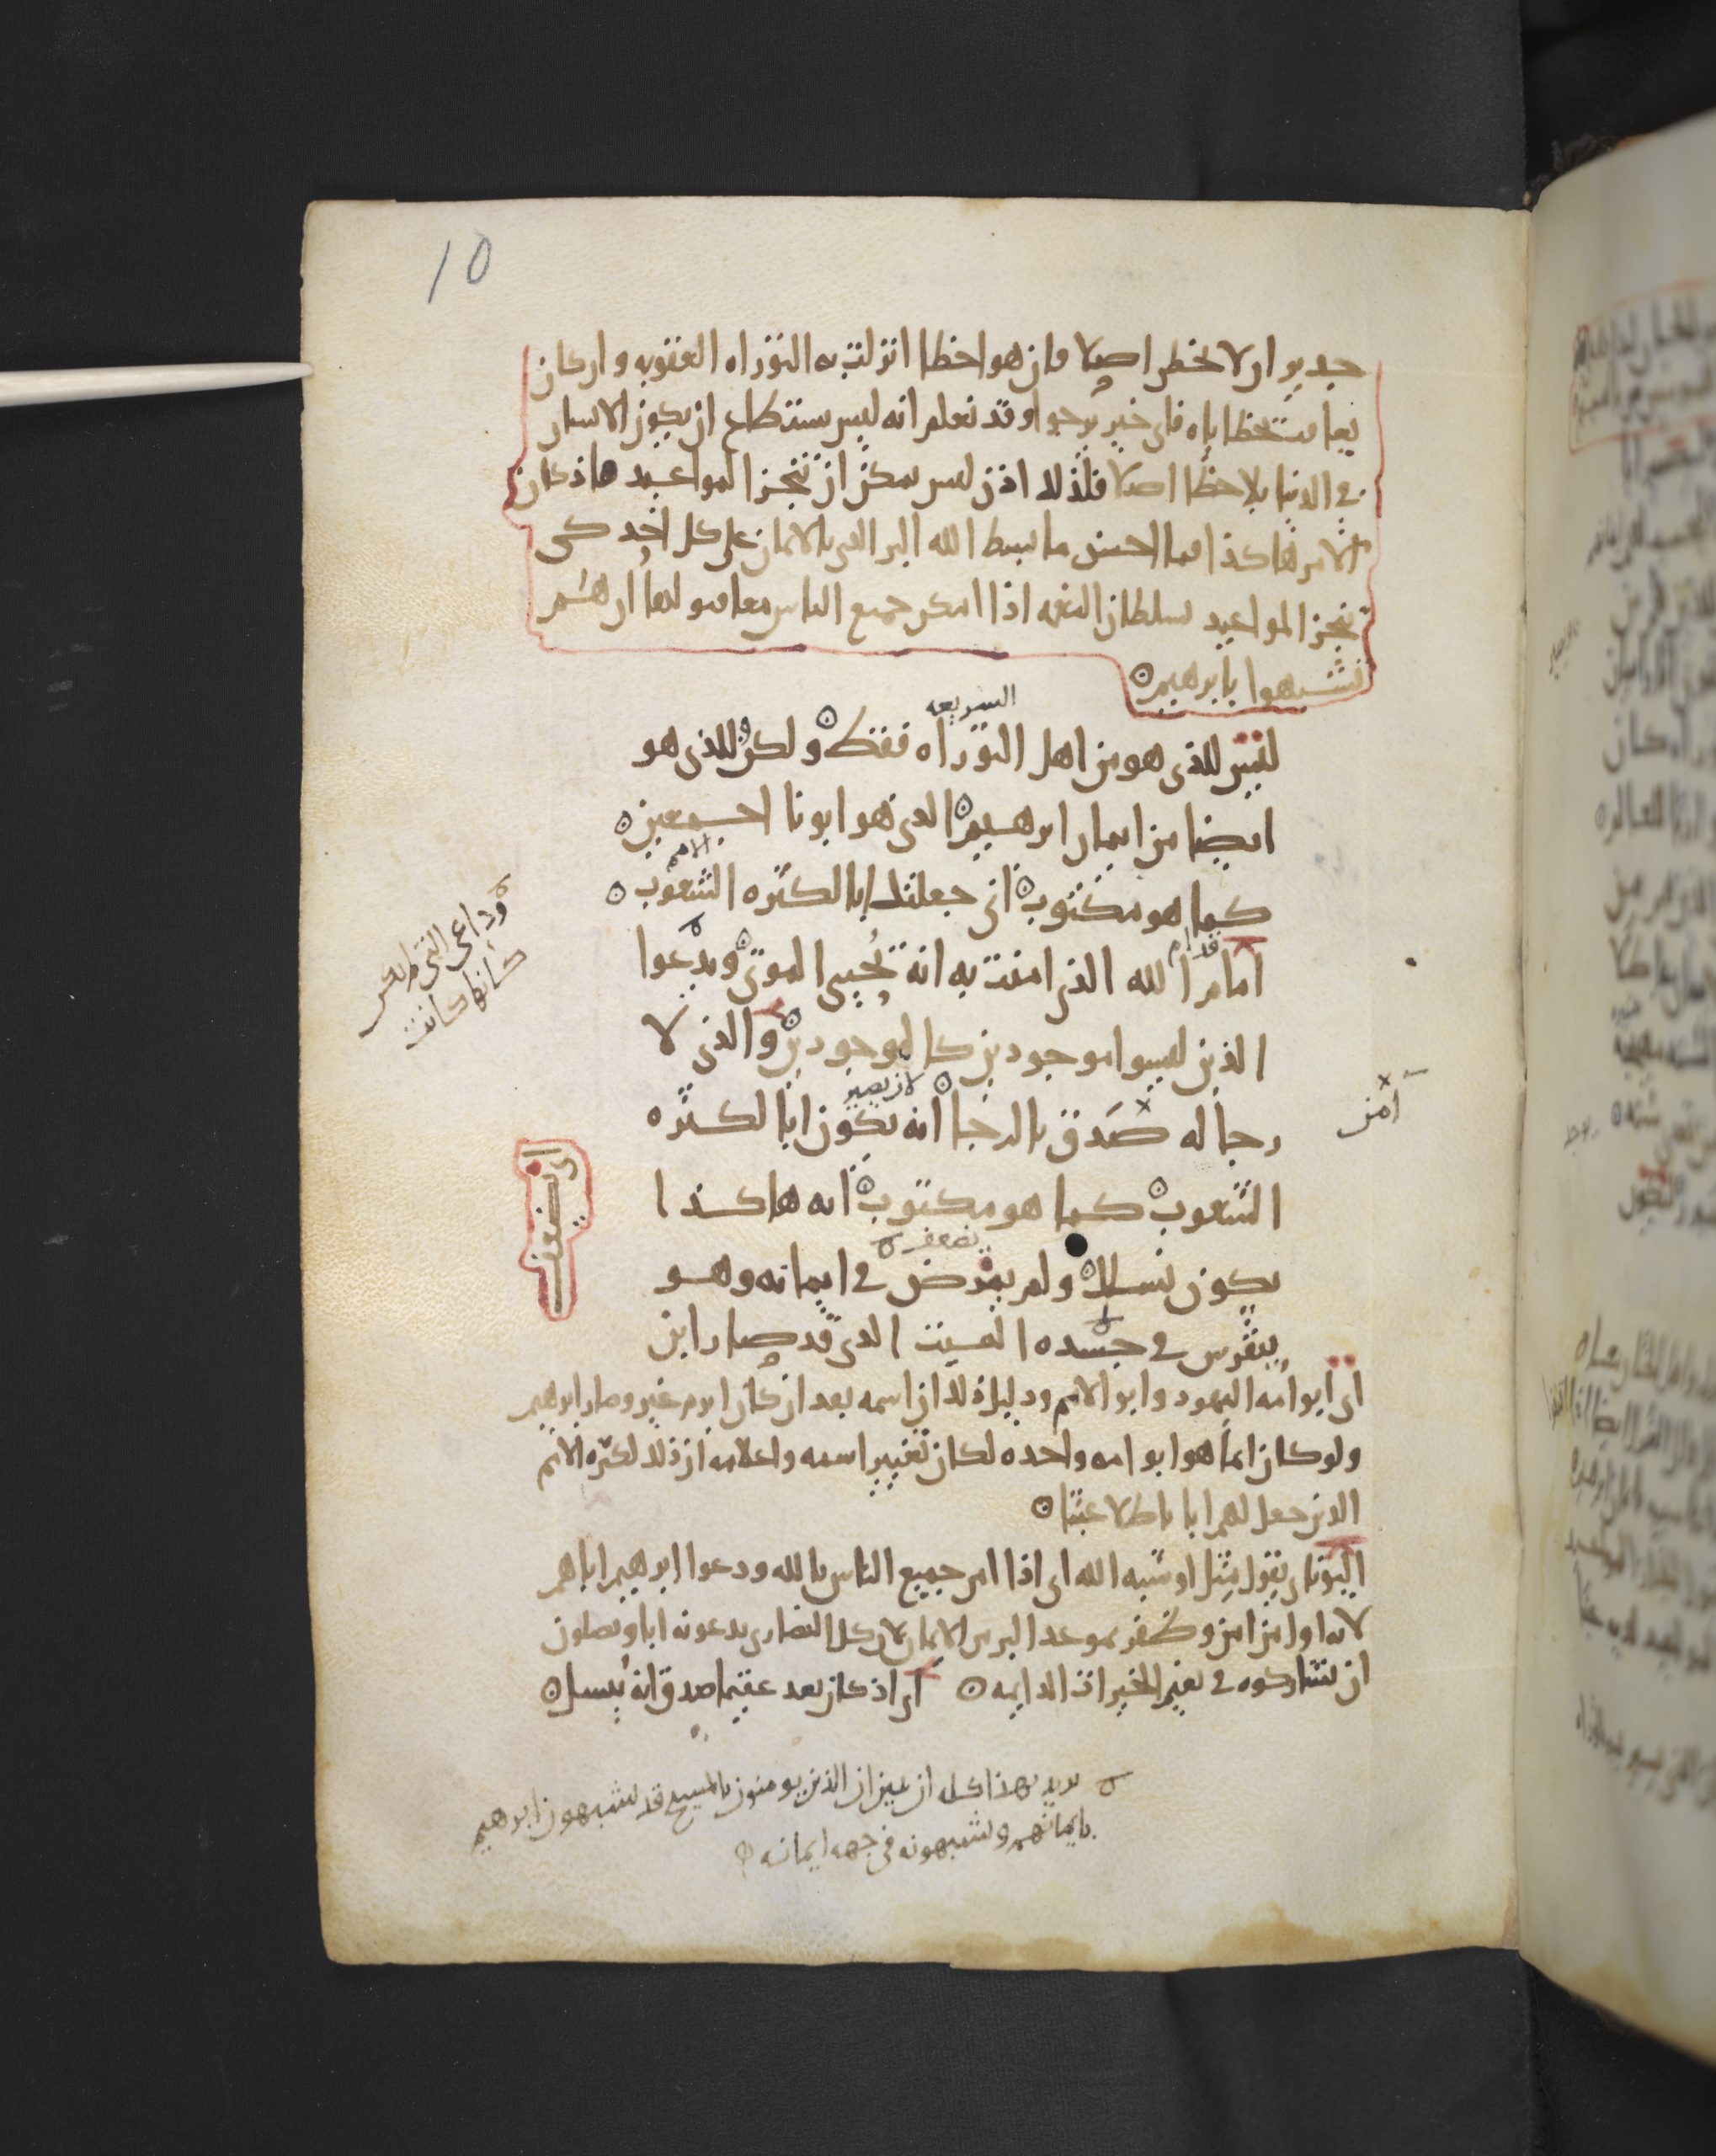 10
جدير ان لا يخطى اصلا فان هو اخطا انزلت به التوراه العقوبه وان كان
في الدنيا بلا خطا اصلا فلذلك اذن ليس يمكن ان تنجز المواعيد فاذ كان
الامر هاكذا فما احسن ما يبسط الله البر الذي بالايمان على كل احد كي
تنجز المواعيد بسلطان النعمه اذا امكن جميع الناس معا
تشبهوا بابرهيم
السريعه
ليس للذي هو من اهل التوراه فقط ولكن للذي هو
ايضا من ايمان ابرهيم الذي هو ابونا اجمعين
الامم
كما هو مكتوب اني جعلتك ابا لكثره الشعوب
قدام
امام الله الذي امنت به انه يُحيي الموتى ويدعوا
وداعي التي ليس
كانها كانت
الذين ليسوا موجودين كالموجودين والذي لا
لان يصير
رجا له صَدق بالرجا انه يكون ابا لكثره
آمن
الشعوب كما هو مكتوب انه هاكذا
يضعف
يكون نسلك ولم يمرض في ايمانه وهو
يتفرس في جسده الميت الذي قد صار ابن
اي ابو امه اليهود وابو الامم ودليل ذلك ان اسمه بعد ان كان ابرم غير وصار ابرهيم
ولو كان انما هو ابو امه واحده لكان تغيير اسمه واعلامه ان ذلك لكثره الامم
الذين جعل لهم ابا باطلا عبثا
اليوناني يقول مثل او شبه الله اي اذا امن جميع الناس بالله ودعوا ابرهيم اباهم
لانه اول من امن وظفر بموعد البر من الايمان لان كل النصارى يدعونه ابا ويصلون
ان يشاركوه في نعيم الخيرات الدايمه اي اذ كان بعد عقيما صدق انه يُنسل
يريد بهذا كله ان يبين ان الذين يومنون بالمسيح قد يشبهون ابرهيم
بايمانهم ويشبهونه في جهه ايمانه